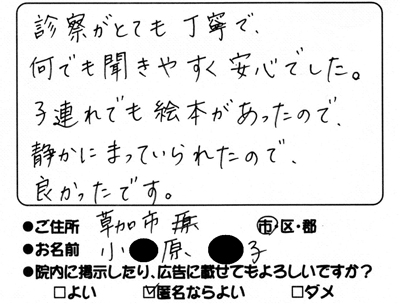 診察がとても丁寧で、
何でも聞きやすく安心でした。
子連れでも絵本があったので、
静かにまっていられたので、
良かったです。
●ご住所 草加市 市・区・郡
●お名前 小●原 ●子
●院内に掲示したり、広告に載せてもよろしいですか?
□よい ☑匿名ならよい □ダメ